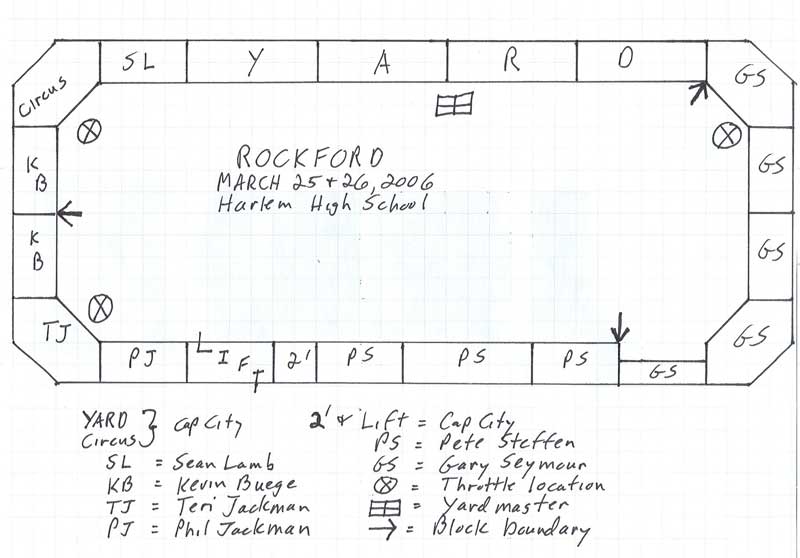 SL Y A R D GS
Circus
K B
GS
ROCKFORD
MARCH 25 + 26, 2006
Harlem High School
K B
GS
TJ
GS
PJ LIFT 2' PS PS PS GS
YARD } Cap City
Circus
SL = Sean Lamb
KB = Kevin Buege
TJ = Teri Jackman
PJ = Phil Jackman
2' & Lift = Cap City
PS = Pete Steffen
GS = Gary Seymour
= Throttle location
= Yard master
= Block boundary